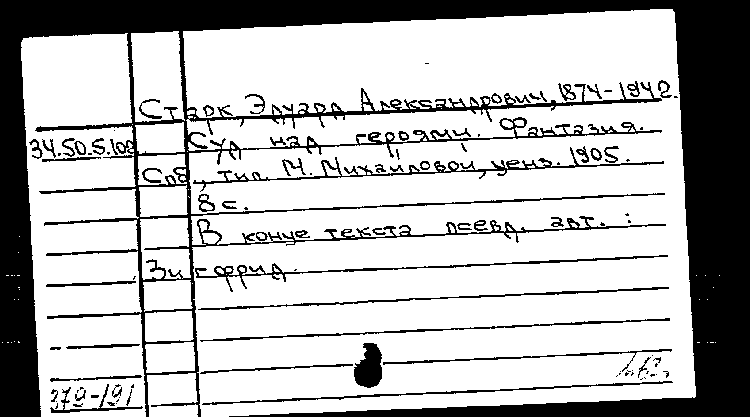 Старк, Эдуард Александрович, 1874-1942.
34.50.5.100 Суд над героями. Фантазия.
Спб, тип. М. Михайловой, ценз. 1905.
8 с.
В конце текста псевд. авт. :
Зигфрид.
379-191